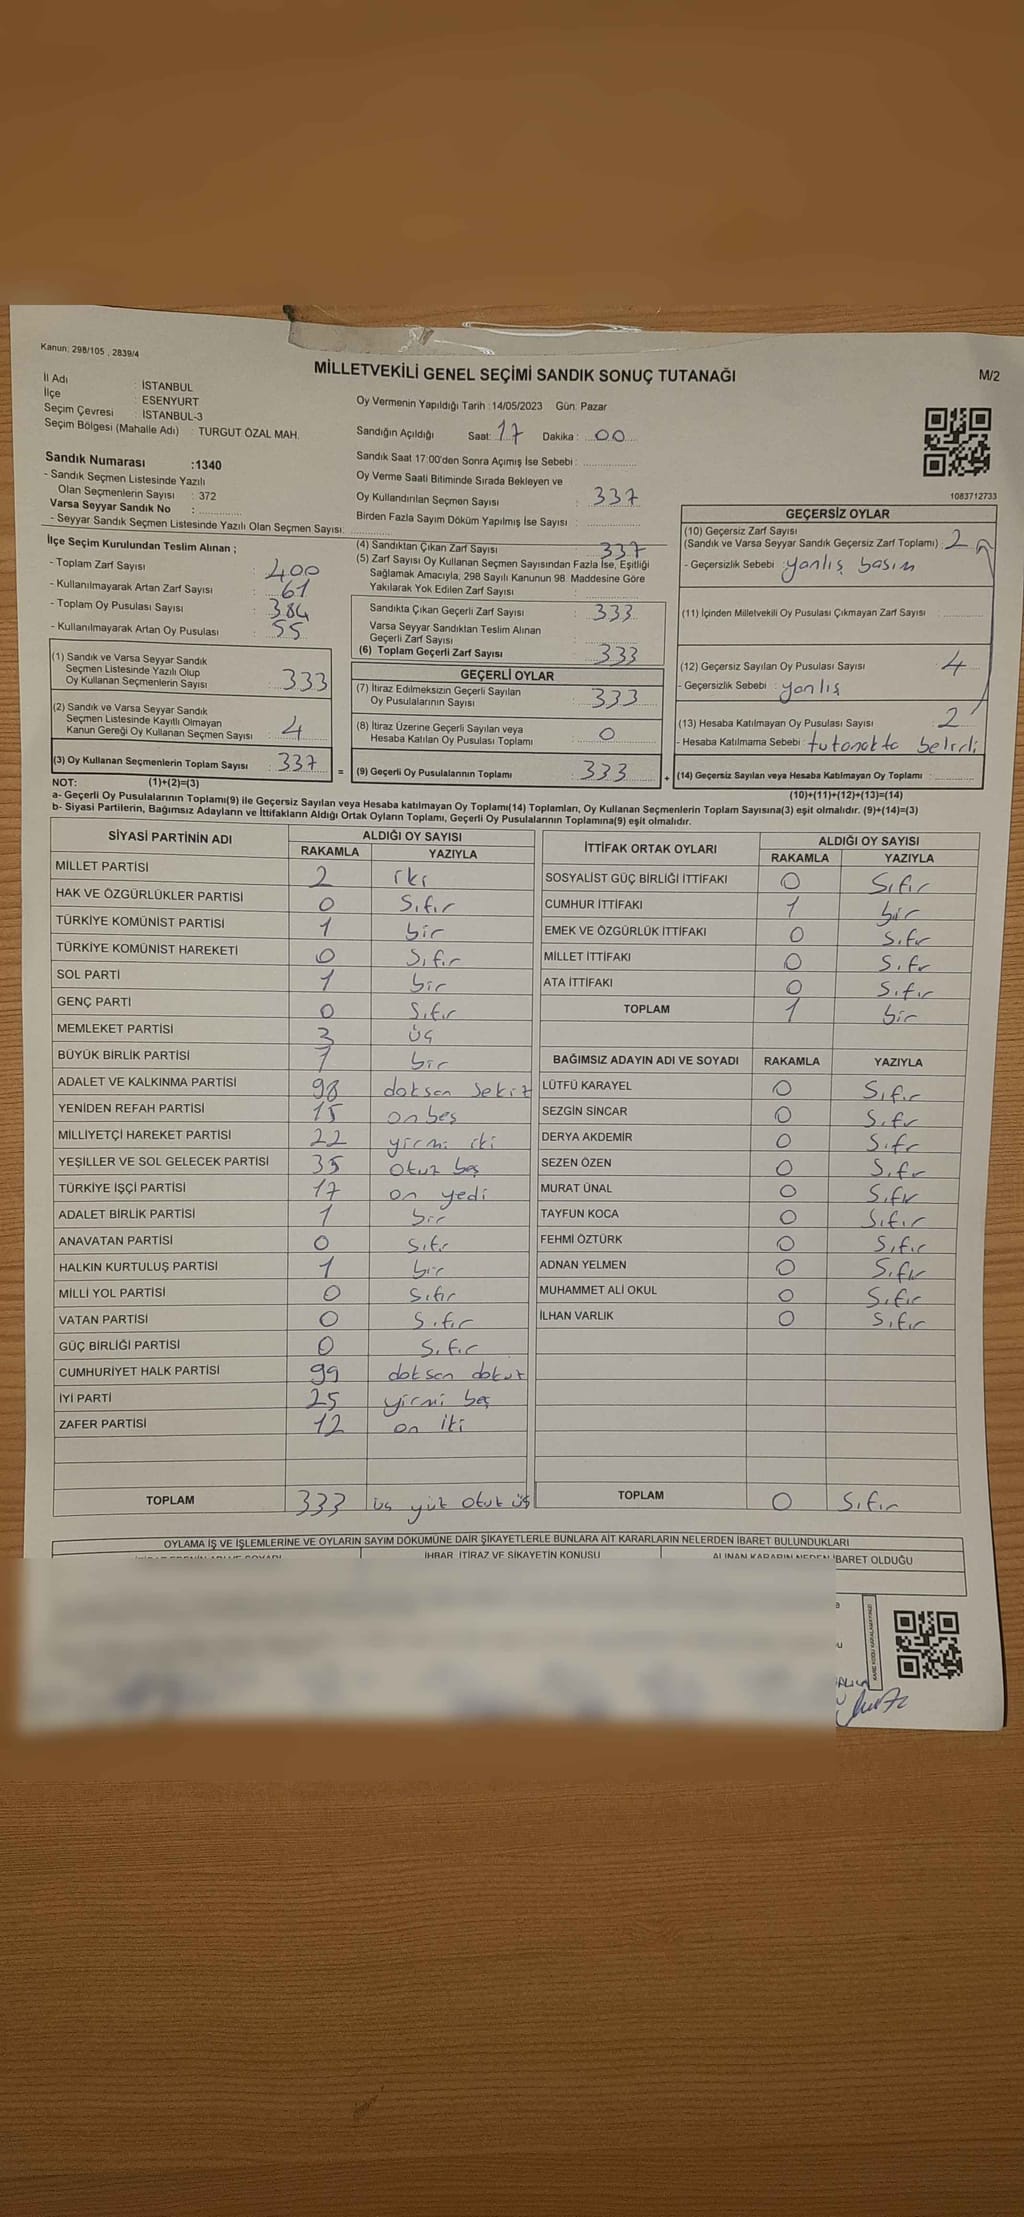 Kanun: 298/105 , 2839/4
MİLLETVEKİLİ GENEL SEÇİMİ SANDIK SONUÇ TUTANAĞI
M/2
İl Adı : İSTANBUL
İlçe : ESENYURT
Seçim Çevresi : İSTANBUL-3
Seçim Bölgesi (Mahalle Adı) : TURGUT ÖZAL MAH.
Sandık Numarası :1340
- Sandık Seçmen Listesinde Yazılı
Olan Seçmenlerin Sayısı : 372
Varsa Seyyar Sandık No :
- Seyyar Sandık Seçmen Listesinde Yazılı Olan Seçmen Sayısı:
Oy Vermenin Yapıldığı Tarih :14/05/2023 Gün: Pazar
Sandığın Açıldığı Saat: 17 Dakika : 00
Sandık Saat 17:00'den Sonra Açımış İse Sebebi :
Oy Verme Saati Bitiminde Sırada Bekleyen ve
Oy Kullandırılan Seçmen Sayısı : 337
Birden Fazla Sayım Döküm Yapılmış İse Sayısı :
1083712733
İlçe Seçim Kurulundan Teslim Alınan ;
- Toplam Zarf Sayısı : 400
- Kullanılmayarak Artan Zarf Sayısı : 61
- Toplam Oy Pusulası Sayısı : 384
- Kullanılmayarak Artan Oy Pusulası : 55
(1) Sandık ve Varsa Seyyar Sandık
Seçmen Listesinde Yazılı Olup
Oy Kullanan Seçmenlerin Sayısı : 333
(2) Sandık ve Varsa Seyyar Sandık
Seçmen Listesinde Kayıtlı Olmayan
Kanun Gereği Oy Kullanan Seçmen Sayısı : 4
(3) Oy Kullanan Seçmenlerin Toplam Sayısı : 337
(4) Sandıktan Çıkan Zarf Sayısı : 337
(5) Zarf Sayısı Oy Kullanan Seçmen Sayısından Fazla İse, Eşitliği
Sağlamak Amacıyla, 298 Sayılı Kanunun 98. Maddesine Göre
Yakılarak Yok Edilen Zarf Sayısı :
Sandıkta Çıkan Geçerli Zarf Sayısı : 333
Varsa Seyyar Sandıktan Teslim Alınan
Geçerli Zarf Sayısı :
(6) Toplam Geçerli Zarf Sayısı : 333
GEÇERLİ OYLAR
(7) İtiraz Edilmeksizin Geçerli Sayılan
Oy Pusulalarının Sayısı : 333
(8) İtiraz Üzerine Geçerli Sayılan veya
Hesaba Katılan Oy Pusulası Toplamı : 0
= (9) Geçerli Oy Pusulalarının Toplamı : 333 +
GEÇERSİZ OYLAR
(10) Geçersiz Zarf Sayısı
(Sandık ve Varsa Seyyar Sandık Geçersiz Zarf Toplamı) : 2
- Geçersizlik Sebebi : yanlış basım
(11) İçinden Milletvekili Oy Pusulası Çıkmayan Zarf Sayısı :
(12) Geçersiz Sayılan Oy Pusulası Sayısı : 4
- Geçersizlik Sebebi : yanlış
(13) Hesaba Katılmayan Oy Pusulası Sayısı : 2
- Hesaba Katılmama Sebebi : tutanakta belirdi
(14) Geçersiz Sayılan veya Hesaba Katılmayan Oy Toplamı :
NOT: (1)+(2)=(3) (10)+(11)+(12)+(13)=(14)
a- Geçerli Oy Pusulalarının Toplamı(9) ile Geçersiz Sayılan veya Hesaba katılmayan Oy Toplamı(14) Toplamları, Oy Kullanan Seçmenlerin Toplam Sayısına(3) eşit olmalıdır. (9)+(14)=(3)
b- Siyasi Partilerin, Bağımsız Adayların ve İttifakların Aldığı Ortak Oyların Toplamı, Geçerli Oy Pusulalarının Toplamına(9) eşit olmalıdır.
SİYASİ PARTİNİN ADI ALDIĞI OY SAYISI
RAKAMLA YAZIYLA
MİLLET PARTİSİ 2 iki
HAK VE ÖZGÜRLÜKLER PARTİSİ 0 Sıfır
TÜRKİYE KOMÜNİST PARTİSİ 1 bir
TÜRKİYE KOMÜNİST HAREKETİ 0 Sıfır
SOL PARTİ 1 bir
GENÇ PARTİ 0 Sıfır
MEMLEKET PARTİSİ 3 üç
BÜYÜK BİRLİK PARTİSİ 1 bir
ADALET VE KALKINMA PARTİSİ 98 doksan sekiz
YENİDEN REFAH PARTİSİ 15 on beş
MİLLİYETÇİ HAREKET PARTİSİ 22 yirmi iki
YEŞİLLER VE SOL GELECEK PARTİSİ 35 otuz beş
TÜRKİYE İŞÇİ PARTİSİ 17 on yedi
ADALET BİRLİK PARTİSİ 1 bir
ANAVATAN PARTİSİ 0 Sıfır
HALKIN KURTULUŞ PARTİSİ 1 bir
MİLLİ YOL PARTİSİ 0 Sıfır
VATAN PARTİSİ 0 Sıfır
GÜÇ BİRLİĞİ PARTİSİ 0 Sıfır
CUMHURİYET HALK PARTİSİ 99 doksan dokuz
İYİ PARTİ 25 yirmi beş
ZAFER PARTİSİ 12 on iki
TOPLAM 333 üç yüz otuz üç
İTTİFAK ORTAK OYLARI ALDIĞI OY SAYISI
RAKAMLA YAZIYLA
SOSYALİST GÜÇ BİRLİĞİ İTTİFAKI 0 Sıfır
CUMHUR İTTİFAKI 1 bir
EMEK VE ÖZGÜRLÜK İTTİFAKI 0 Sıfır
MİLLET İTTİFAKI 0 Sıfır
ATA İTTİFAKI 0 Sıfır
TOPLAM 1 bir
BAĞIMSIZ ADAYIN ADI VE SOYADI RAKAMLA YAZIYLA
LÜTFÜ KARAYEL 0 Sıfır
SEZGİN SİNCAR 0 Sıfır
DERYA AKDEMİR 0 Sıfır
SEZEN ÖZEN 0 Sıfır
MURAT ÜNAL 0 Sıfır
TAYFUN KOCA 0 Sıfır
FEHMİ ÖZTÜRK 0 Sıfır
ADNAN YELMEN 0 Sıfır
MUHAMMET ALİ OKUL 0 Sıfır
İLHAN VARLIK 0 Sıfır
TOPLAM 0 Sıfır
OYLAMA İŞ VE İŞLEMLERİNE VE OYLARIN SAYIM DÖKÜMÜNE DAİR ŞİKAYETLERLE BUNLARA AİT KARARLARIN NELERDEN İBARET BULUNDUKLARI
İHBAR, İTİRAZ VE ŞİKAYETİN KONUSU ALINAN KARARIN NEDEN İBARET OLDUĞU